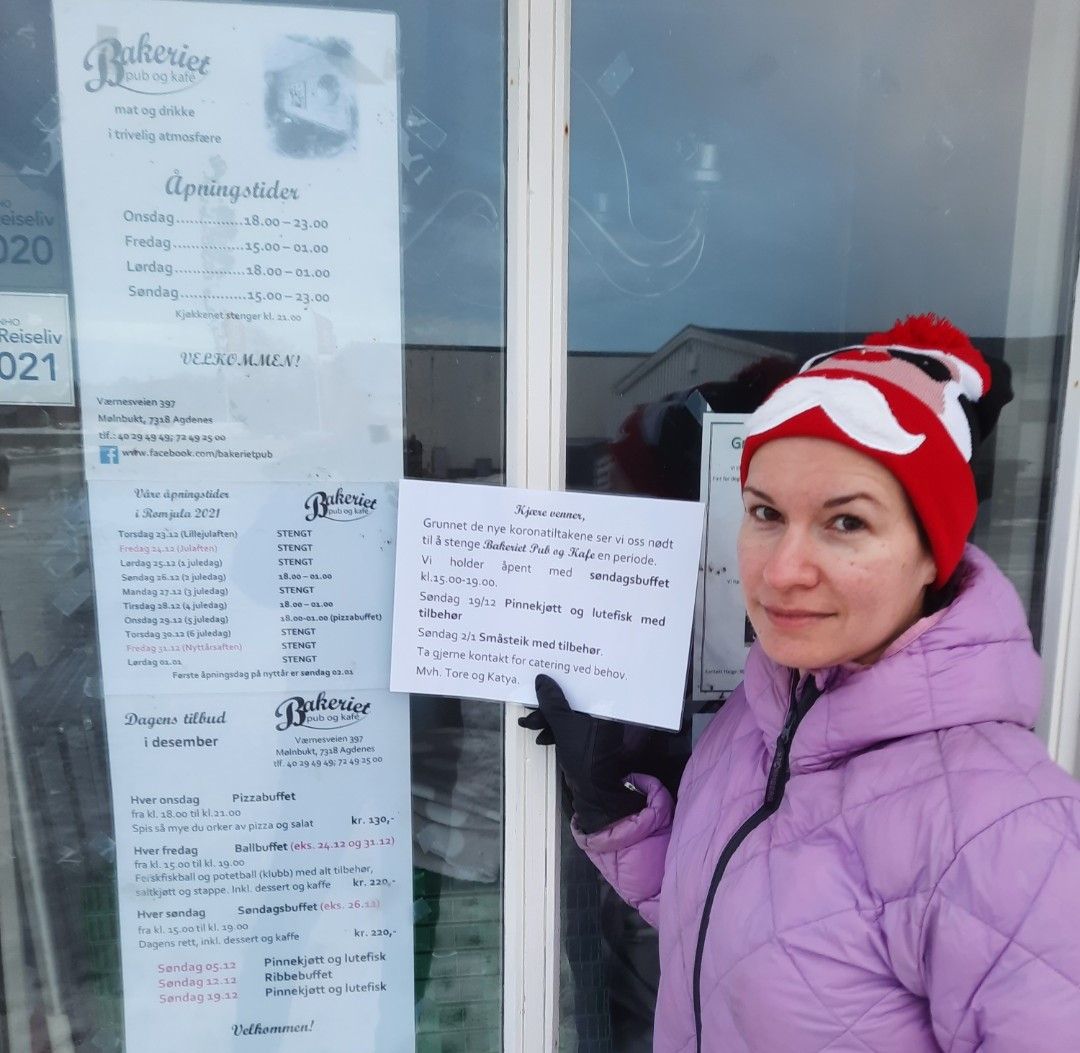 Bakeriet
pub og kafé
mat og drikke
i trivelig atmosfære
Åpningstider
Onsdag...............18.00 – 23.00
Fredag................15.00 – 01.00
Lørdag................18.00 – 01.00
Søndag...............15.00 – 23.00
Kjøkkenet stenger kl. 21.00
VELKOMMEN!
Værnesveien 397
Mølnbukt, 7318 Agdenes
tlf.: 40 29 49 49; 72 49 25 00
www.facebook.com/bakerietpub
HO
eiseliv
020
NHO
Reiseliv
021
Våre åpningstider
i Romjula 2021
Bakeriet
pub og kafé
Torsdag 23.12 (Lillejulaften) STENGT
Fredag 24.12 (Julaften) STENGT
Lørdag 25.12 (1 juledag) STENGT
Søndag 26.12 (2 juledag) 18.00 – 01.00
Mandag 27.12 (3 juledag) STENGT
Tirsdag 28.12 (4 juledag) 18.00 – 01.00
Onsdag 29.12 (5 juledag) 18.00-01.00 (pizzabuffet)
Torsdag 30.12 (6 juledag) STENGT
Fredag 31.12 (Nyttårsaften) STENGT
Lørdag 01.01 STENGT
Første åpningsdag på nyttår er søndag 02.01
Dagens tilbud
i desember
Bakeriet
pub og kafé
Værnesveien 397
Mølnbukt, 7318 Agdenes
tlf. 40 29 49 49; 72 49 25 00
Hver onsdag Pizzabuffet
fra kl. 18.00 til kl.21.00
Spis så mye du orker av pizza og salat kr. 130,-
Hver fredag Ballbuffet (eks. 24.12 og 31.12)
fra kl. 15.00 til kl. 19.00
Ferskfiskball og potetball (klubb) med alt tilbehør,
saltkjøtt og stappe. Inkl. dessert og kaffe kr. 220,-
Hver søndag Søndagsbuffet (eks. 26.12)
fra kl. 15.00 til kl. 19.00
Dagens rett, inkl. dessert og kaffe kr. 220,-
Søndag 05.12 Pinnekjøtt og lutefisk
Søndag 12.12 Ribbebuffet
Søndag 19.12 Pinnekjøtt og lutefisk
Velkommen!
Kjære venner,
Grunnet de nye koronatiltakene ser vi oss nødt
til å stenge Bakeriet Pub og Kafe en periode.
Vi holder åpent med søndagsbuffet
kl.15.00-19.00.
Søndag 19/12 Pinnekjøtt og lutefisk med
tilbehør
Søndag 2/1 Småsteik med tilbehør.
Ta gjerne kontakt for catering ved behov.
Mvh. Tore og Katya.